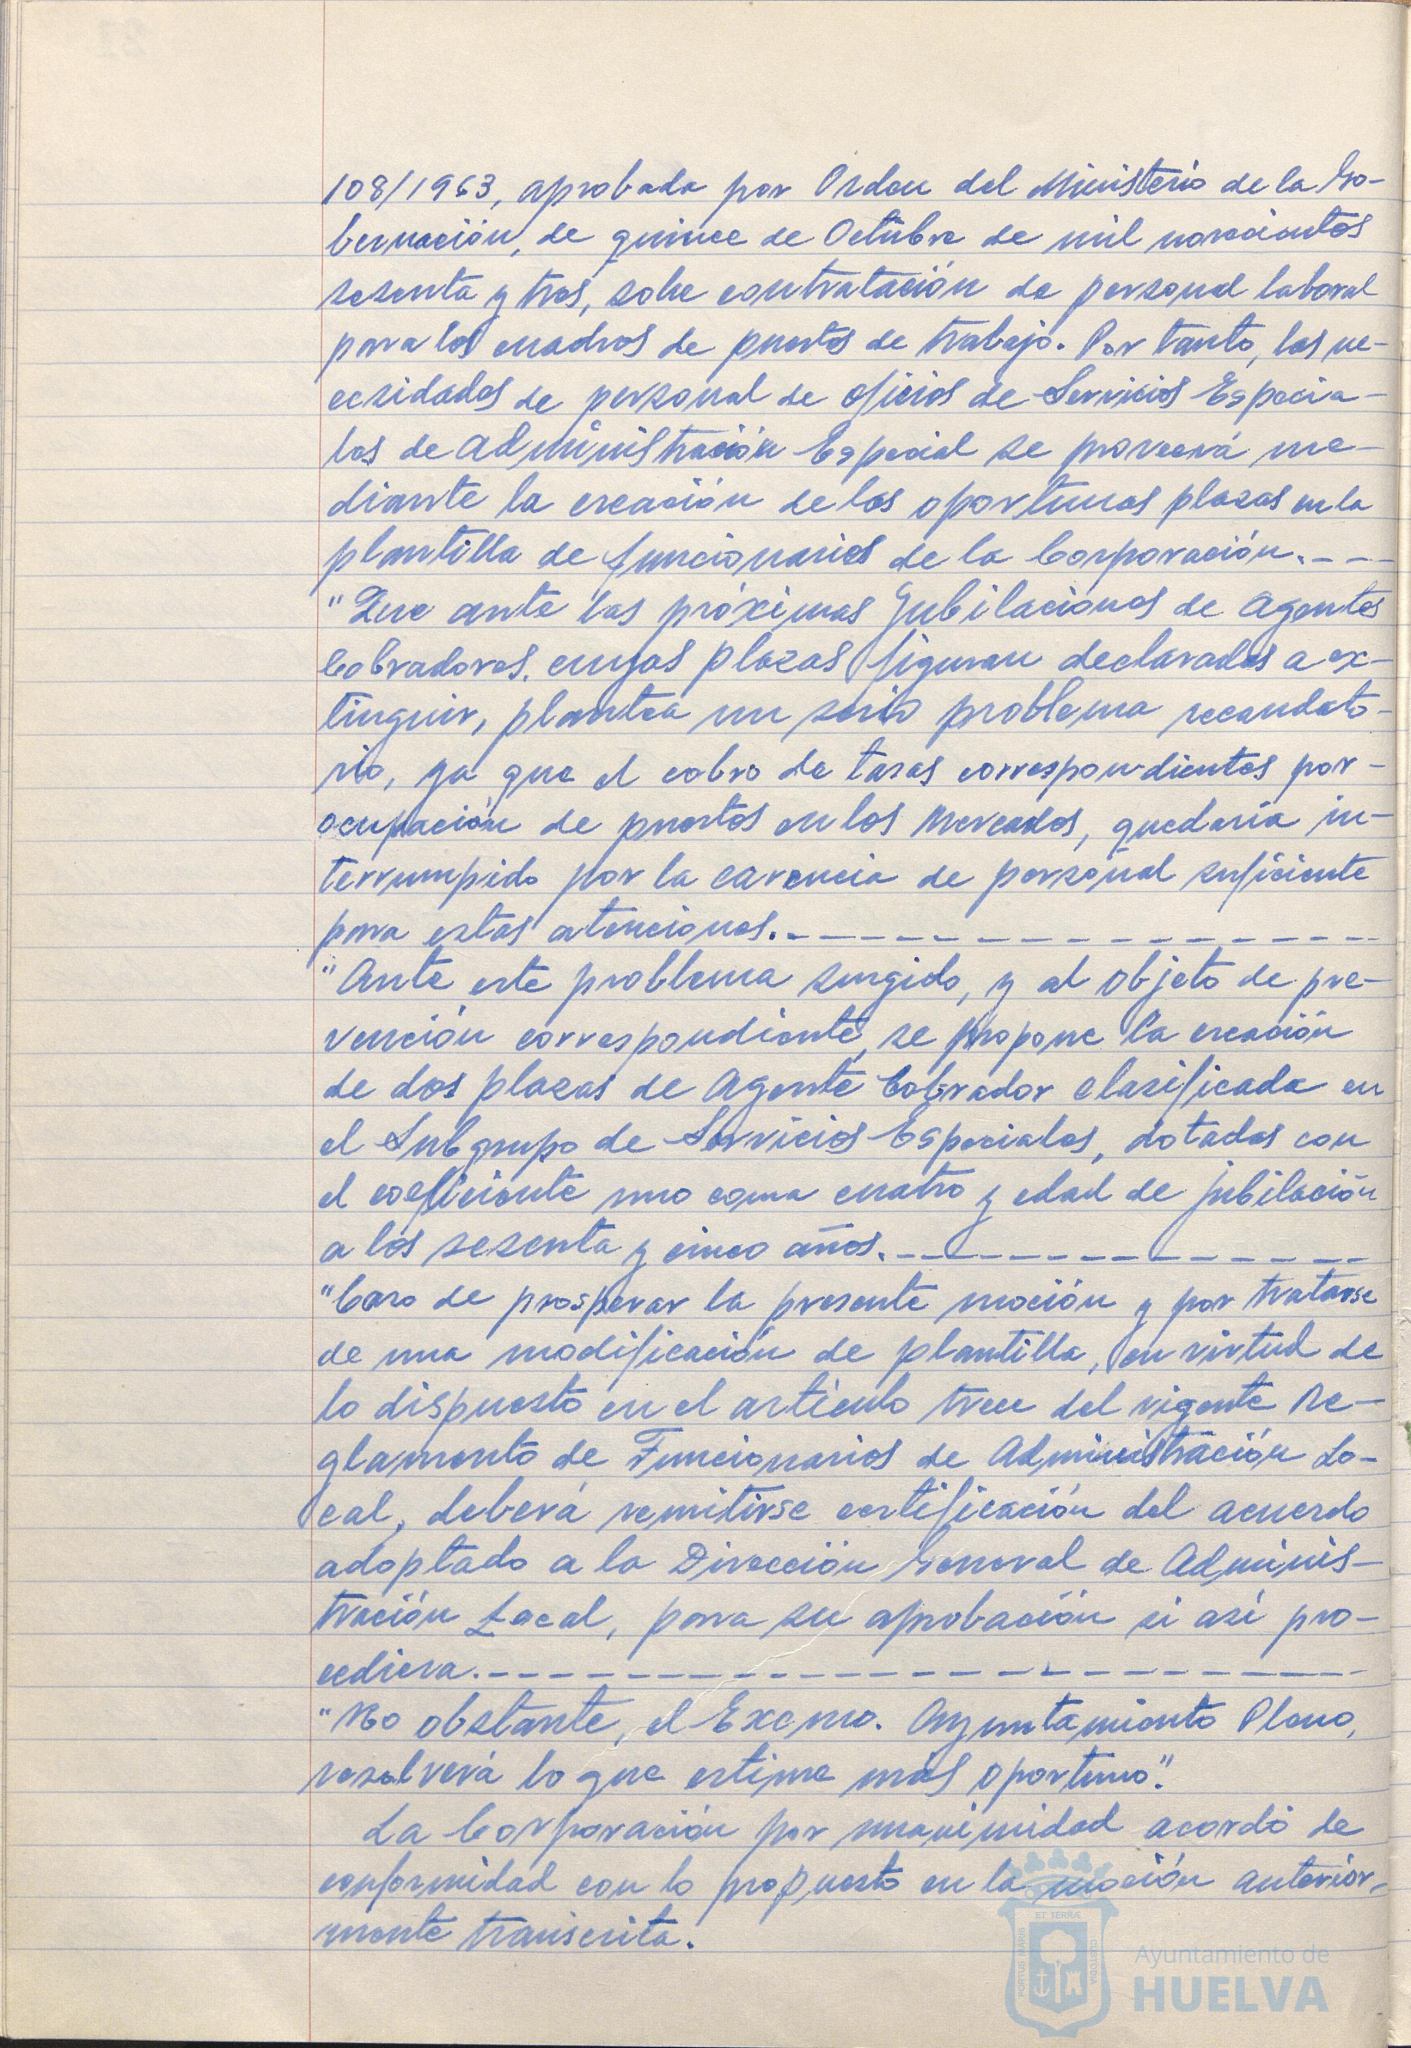 108/1963, aprobada por Orden del Ministerio de la Go-
bernación, de quince de Octubre de mil novecientos
sesenta y tres, sobre contratación de personal laboral
para los cuadros de puestos de trabajo. Por tanto, las ne-
cesidades de personal de oficios de Servicios Especia-
les de Administración Especial se proveerá me-
diante la creación de las oportunas plazas en la
plantilla de funcionarios de la Corporación.----
"Que ante las próximas Jubilaciones de Agentes
Cobradores. cuyas plazas figuran declaradas a ex-
tinguir, plantea un serio problema recaudato-
rio, ya que el cobro de tasas correspondientes por-
ocupación de puestos en los Mercados, quedaría in-
terrumpido por la carencia de personal suficiente
para estas atenciones.-------------
"Ante este problema surgido, y al objeto de pre-
vención correspondiente, se propone la creación
de dos plazas de Agente Cobrador clasificada en
el Subgrupo de Servicios Especiales, dotadas con
el coeficiente uno coma cuatro y edad de jubilación
a los sesenta y cinco años.------------
"Caso de prosperar la presente moción y por tratarse
de una modificación de plantilla, en virtud de
lo dispuesto en el artículo trece del vigente Re-
glamento de Funcionarios de Administración Lo-
cal, deberá remitirse certificación del acuerdo
adoptado a la Dirección General de Adminis-
tración Local, para su aprobación si así pro-
cediera.-----------------
"No obstante, el Excmo. Ayuntamiento Pleno,
resolverá lo que estime más oportuno".
La Corporación por unanimidad acordó de
conformidad con lo propuesto en la moción anterior-
mente transcrita.
ET TERRÆ
PORTUS MARIS
CUSTODIA
Ayuntamiento de
HUELVA